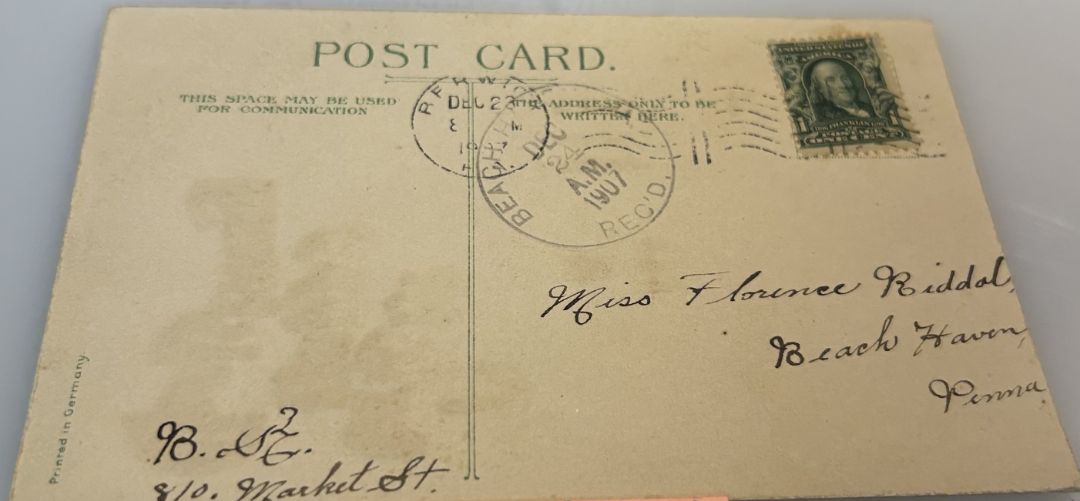 POST CARD.
THIS SPACE MAY BE USED
FOR COMMUNICATION
THE ADDRESS ONLY TO BE
WRITTEN HERE.
UNITED STATES OF
AMERICA
1 FRANKLIN 1
POSTAGE
ONE CENT
DEC 23
8 M
BEACH H
DEC
24
A.M.
1907
REC'D.
Miss Florence Riddal,
Beach Haven,
Penna
B.
810. Market St.
Printed in Germany